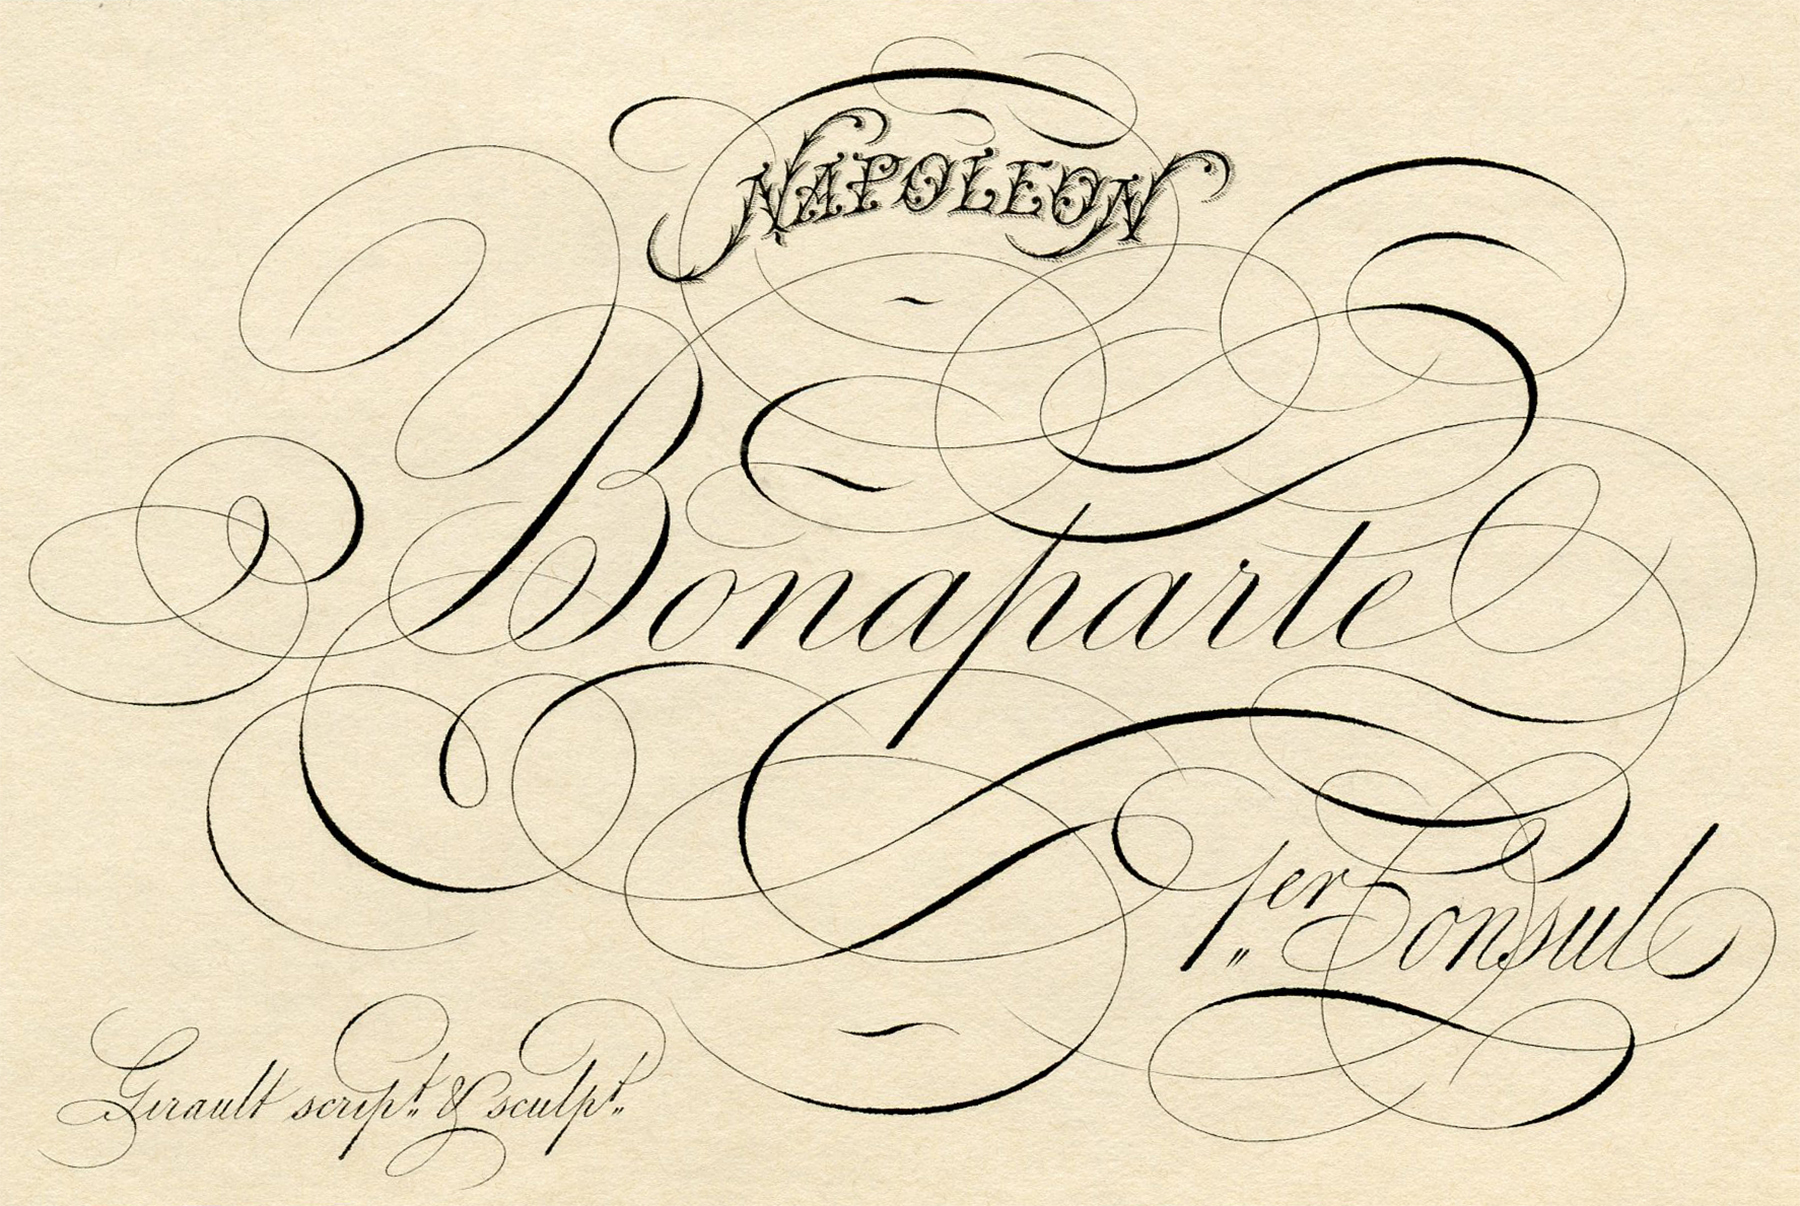 NAPOLEON
Bonaparte
1er Consul
Girault script. & sculpt.